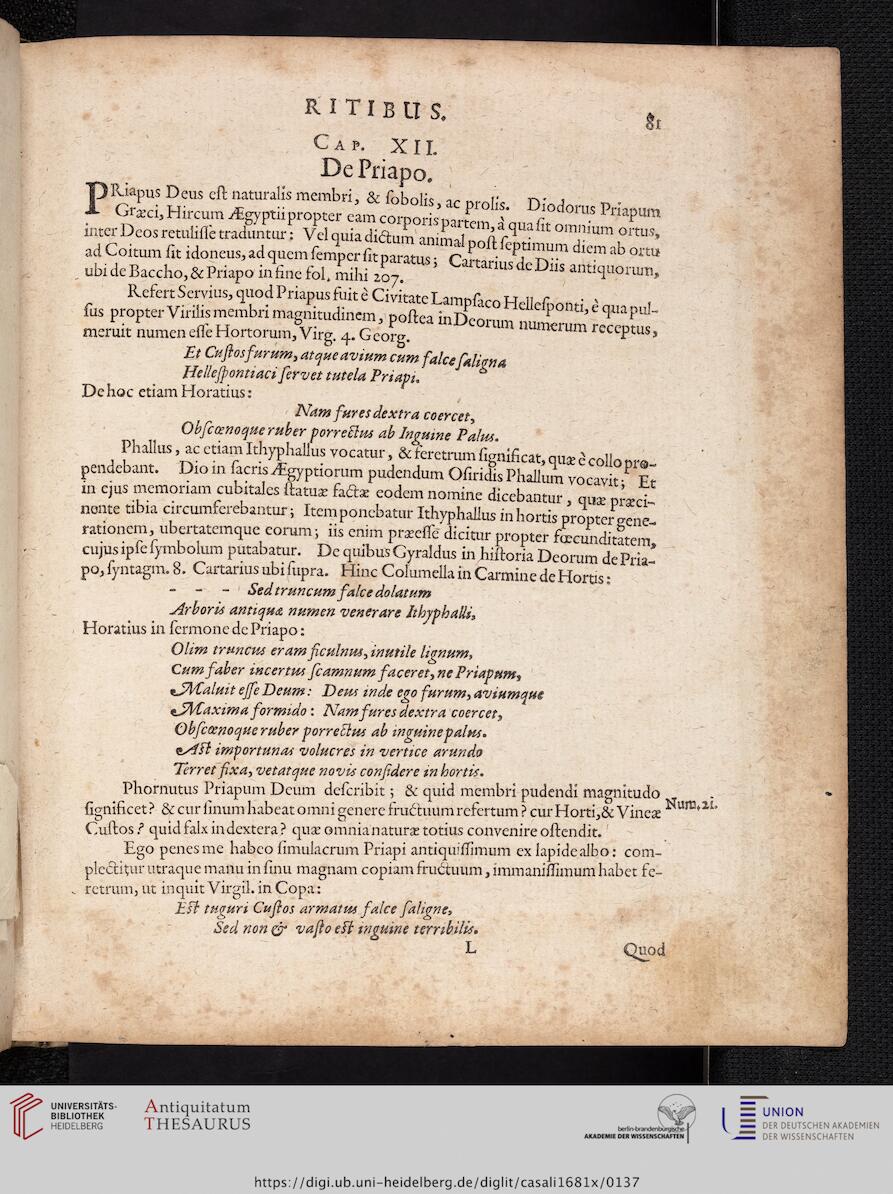 RITIBUS.
81
CAP. XII.
De Priapo.
PRiapus Deus est naturalis membri, & sobolis, ac prolis. Diodorus Priapum
Græci, Hircum Ægyptii propter eam corporis partem, à qua sit omnium ortus,
inter Deos retulisse traduntur: Vel quia dictum animal post septimum diem ab ortu
ad Coitum sit idoneus, ad quem semper sit paratus; Cartarius de Diis antiquorum,
ubi de Baccho, & Priapo in fine fol. mihi 207.
Refert Servius, quod Priapus fuit è Civitate Lampsaco Hellesponti, è qua pul-
sus propter Virilis membri magnitudinem, postea in Deorum numerum receptus,
meruit numen esse Hortorum, Virg. 4. Georg.
Et Custos furum, atque avium cum falce saligna
Hellespontiaci servet tutela Priapi.
De hoc etiam Horatius:
Nam fures dextra coercet,
Obscœnoque ruber porrectus ab Inguine Palus.
Phallus, ac etiam Ithyphallus vocatur, & feretrum significat, quæ è collo pro-
pendebant. Dio in sacris Ægyptiorum pudendum Osiridis Phallum vocavit; Et
in ejus memoriam cubitales statuæ factæ eodem nomine dicebantur, quæ præci-
nente tibia circumferebantur; Item ponebatur Ithyphallus in hortis propter gene-
rationem, ubertatemque eorum; iis enim præesse dicitur propter fœcunditatem,
cujus ipse symbolum putabatur. De quibus Gyraldus in historia Deorum de Pria-
po, syntagm. 8. Cartarius ubi supra. Hinc Columella in Carmine de Hortis:
- - - Sed truncum falce dolatum
Arboris antiquæ numen venerare Ithyphalli,
Horatius in sermone de Priapo:
Olim truncus eram ficulnus, inutile lignum,
Cum faber incertus scamnum faceret, ne Priapum,
Maluit esse Deum: Deus inde ego furum, aviumque
Maxima formido: Nam fures dextra coercet,
Obscœnoque ruber porrectus ab inguine palus.
Ast importunas volucres in vertice arundo
Terret fixa, vetatque novis considere in hortis.
Phornutus Priapum Deum describit; & quid membri pudendi magnitudo
significet? & cur sinum habeat omni genere fructuum refertum? cur Horti, & Vineæ
Num. 21.
Custos? quid falx in dextera? quæ omnia naturæ totius convenire ostendit.
Ego penes me habeo simulacrum Priapi antiquissimum ex lapide albo: com-
plectitur utraque manu in sinu magnam copiam fructuum, immanissimum habet fe-
retrum, ut inquit Virgil. in Copa:
Est tuguri Custos armatus falce saligne,
Sed non & vasto est inguine terribilis.
L
Quod
UNIVERSITÄTS-
BIBLIOTHEK
HEIDELBERG
Antiquitatum
THESAURUS
berlin-brandenburgische
AKADEMIE DER WISSENSCHAFTEN
UNION
DER DEUTSCHEN AKADEMIEN
DER WISSENSCHAFTEN
https://digi.ub.uni-heidelberg.de/diglit/casali1681x/0137